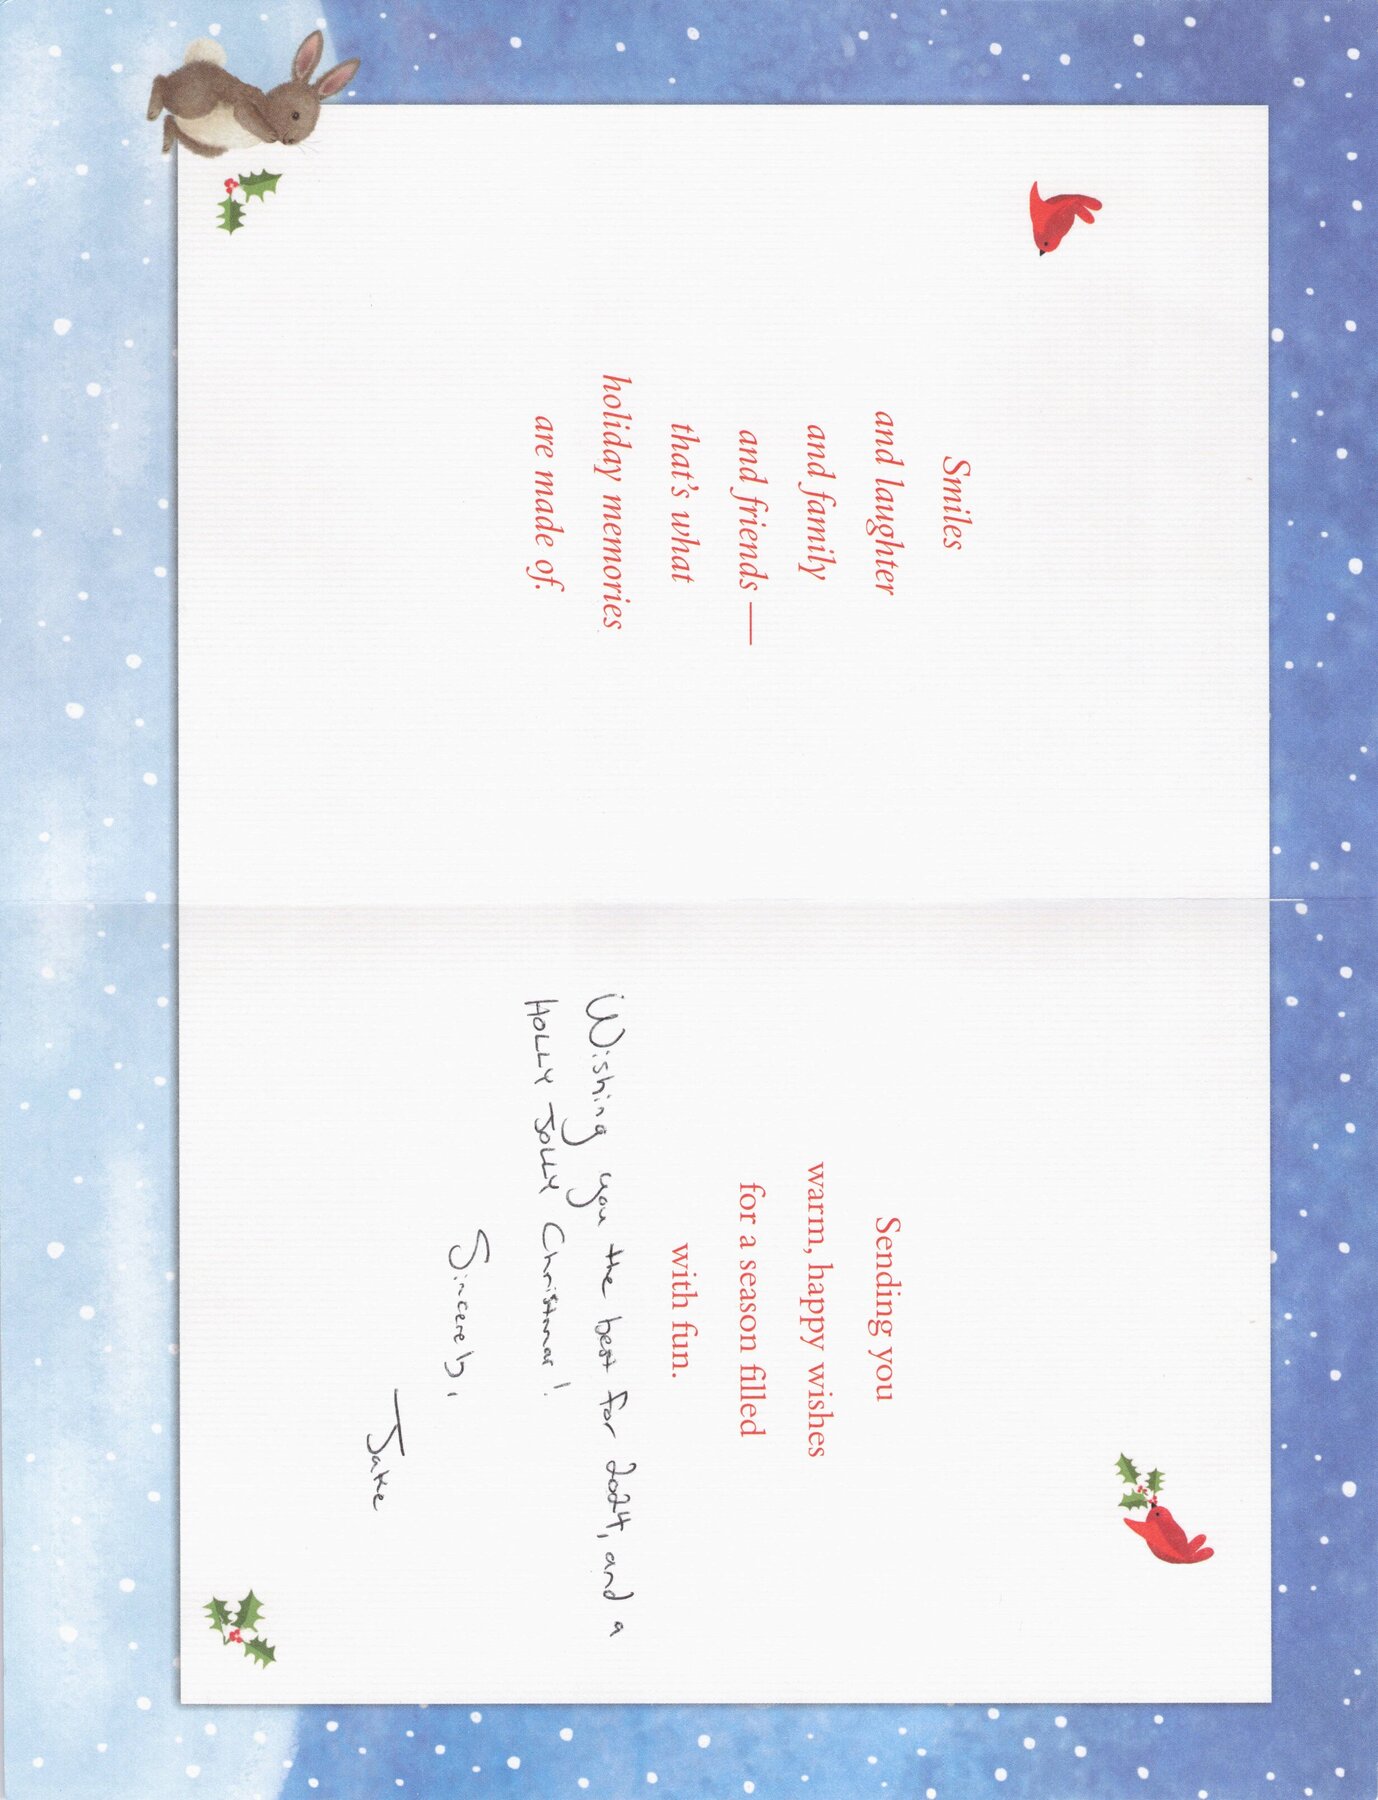 Smiles
and laughter
and family
and friends —
that's what
holiday memories
are made of.
Sending you
warm, happy wishes
for a season filled
with fun.
Wishing you the best for 2024, and a
HOLLY JOLLY Christmas!
Sincerely,
Jake